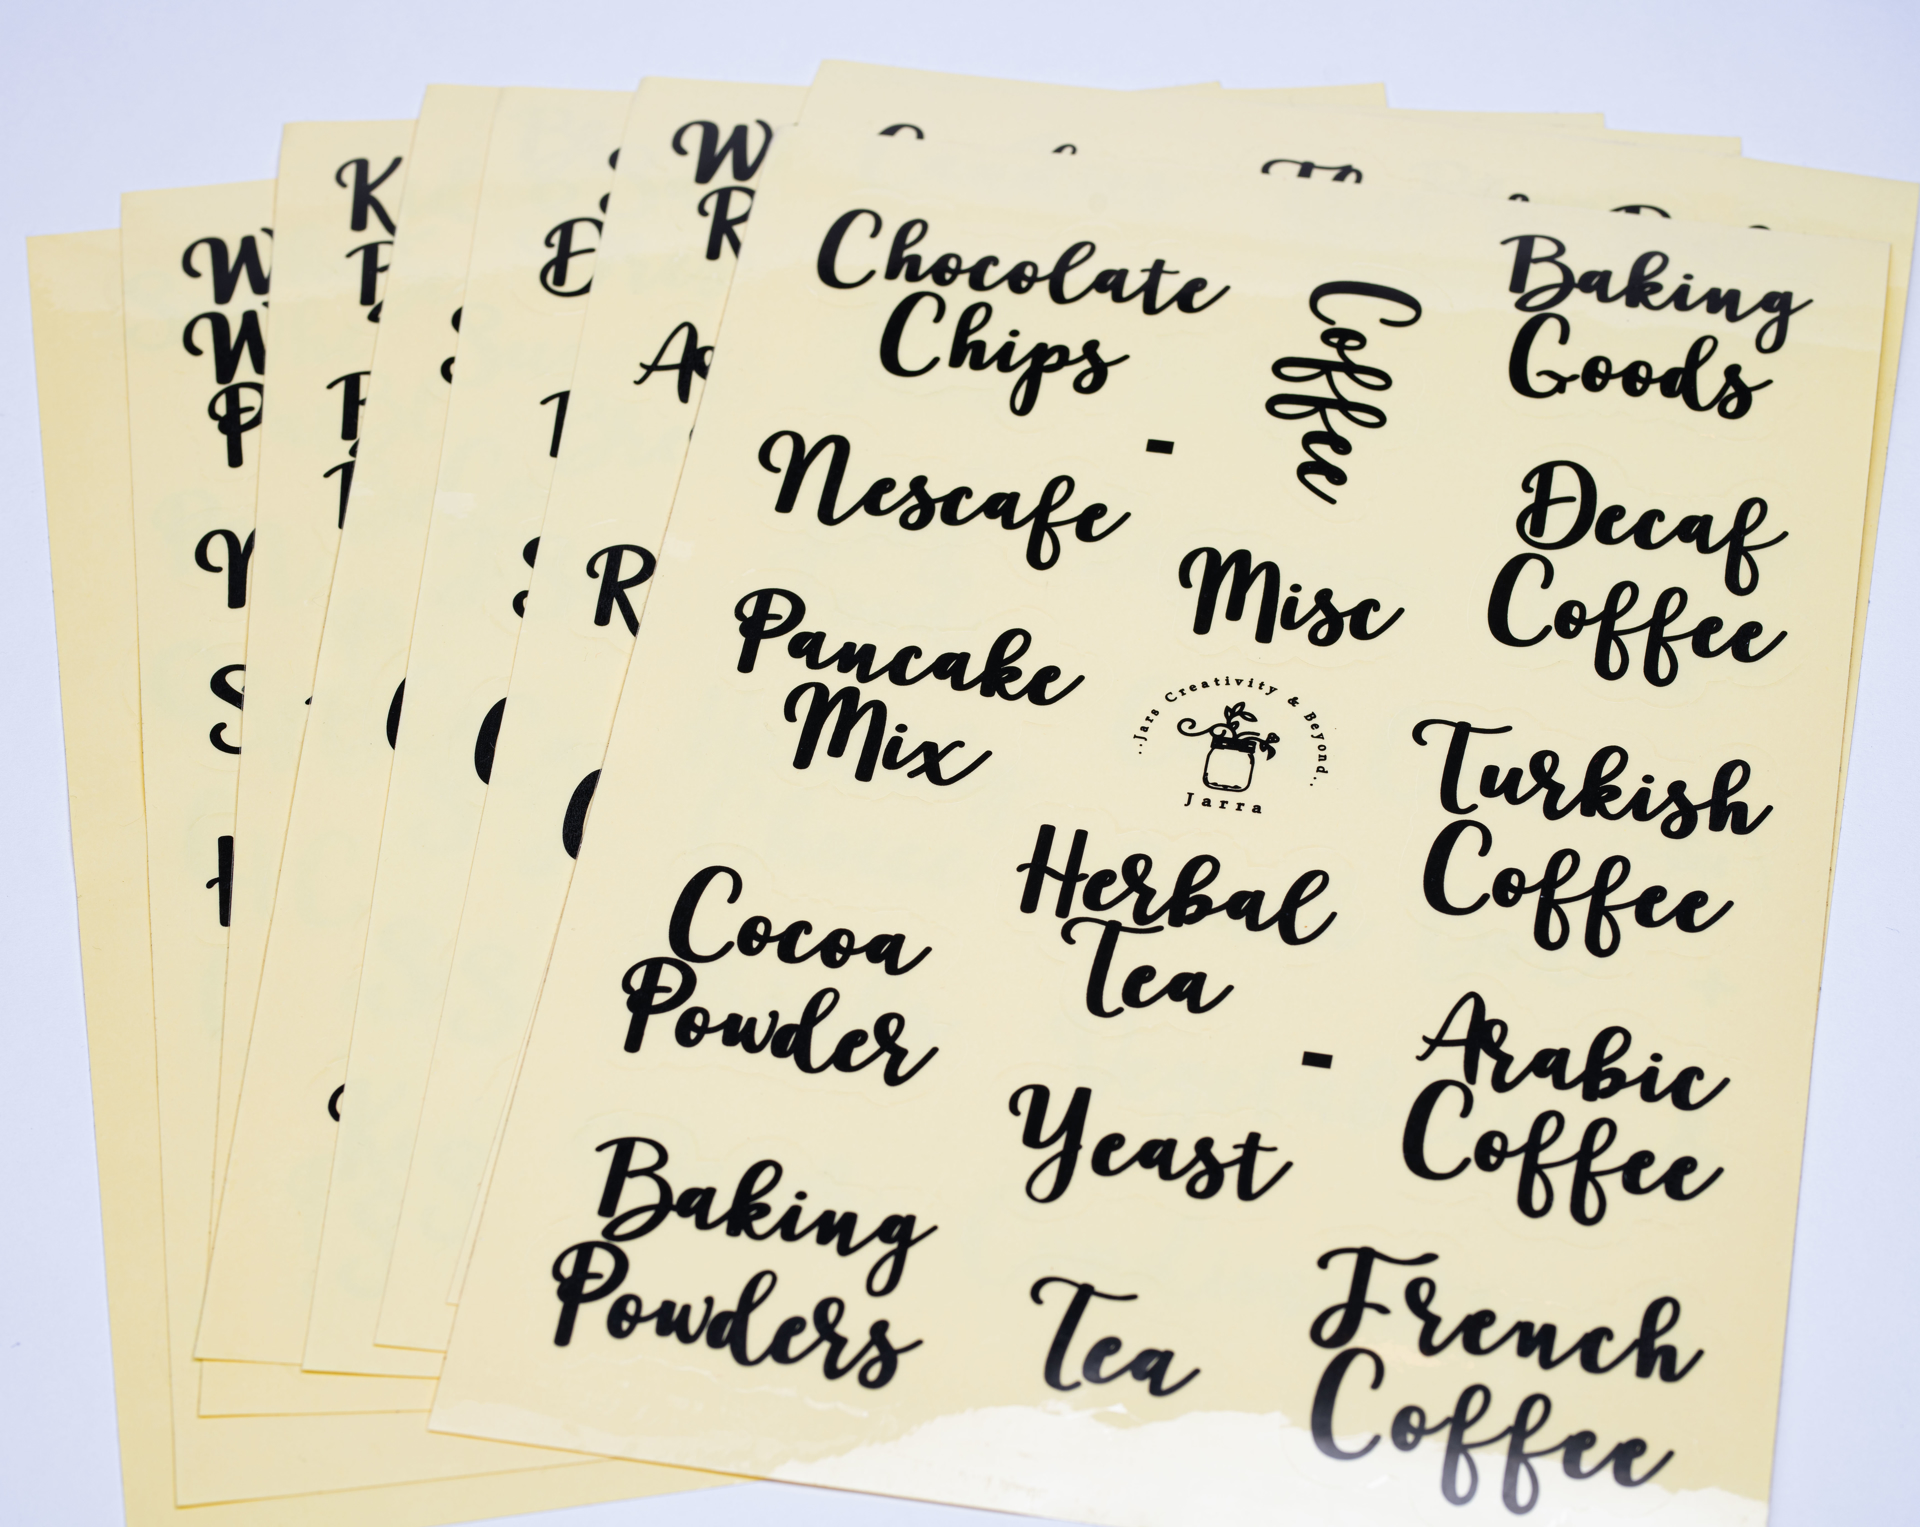 Chocolate
Chips
Nescafe
-
Pancake
Mix
Cocoa
Powder
Baking
Powders
Coffee
Misc
..Jars Creativity & Beyond..
Jarra
Herbal
Tea
-
Yeast
Tea
Baking
Goods
Decaf
Coffee
Turkish
Coffee
Arabic
Coffee
French
Coffee